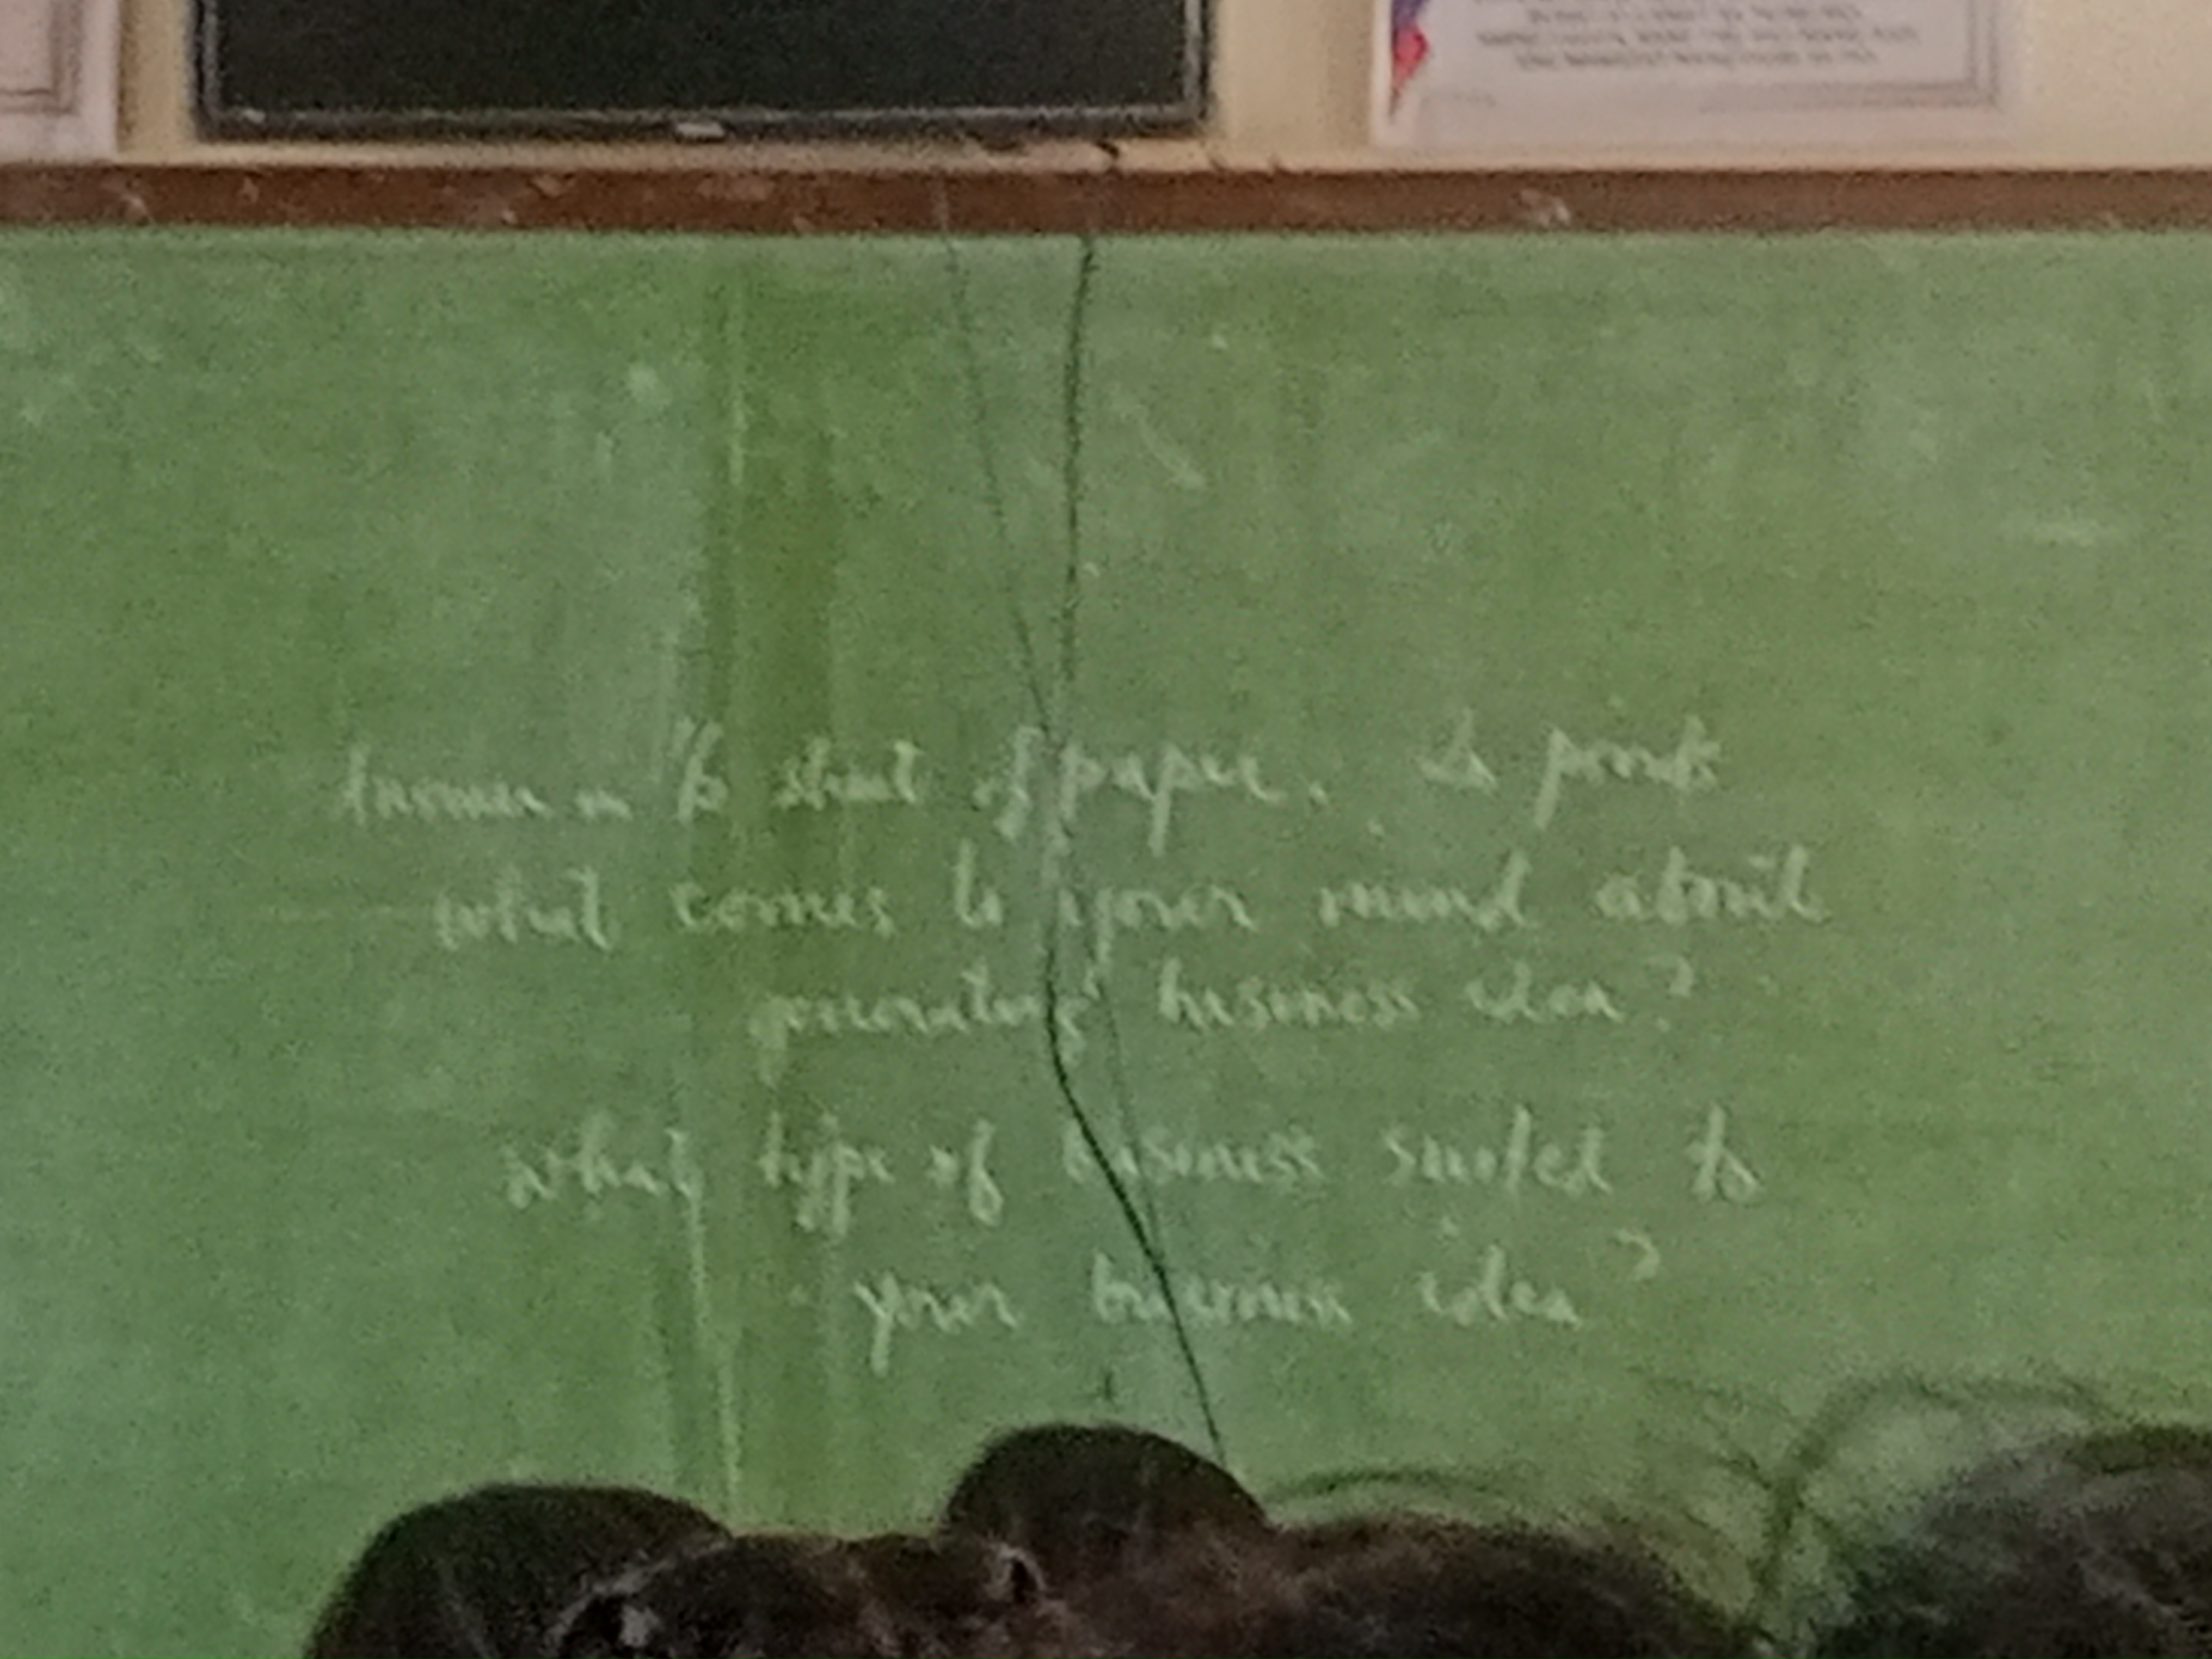 Answer in ½ sheet of paper.
what comes to your mind about
generating business idea?
what type of business suited to
your business idea?